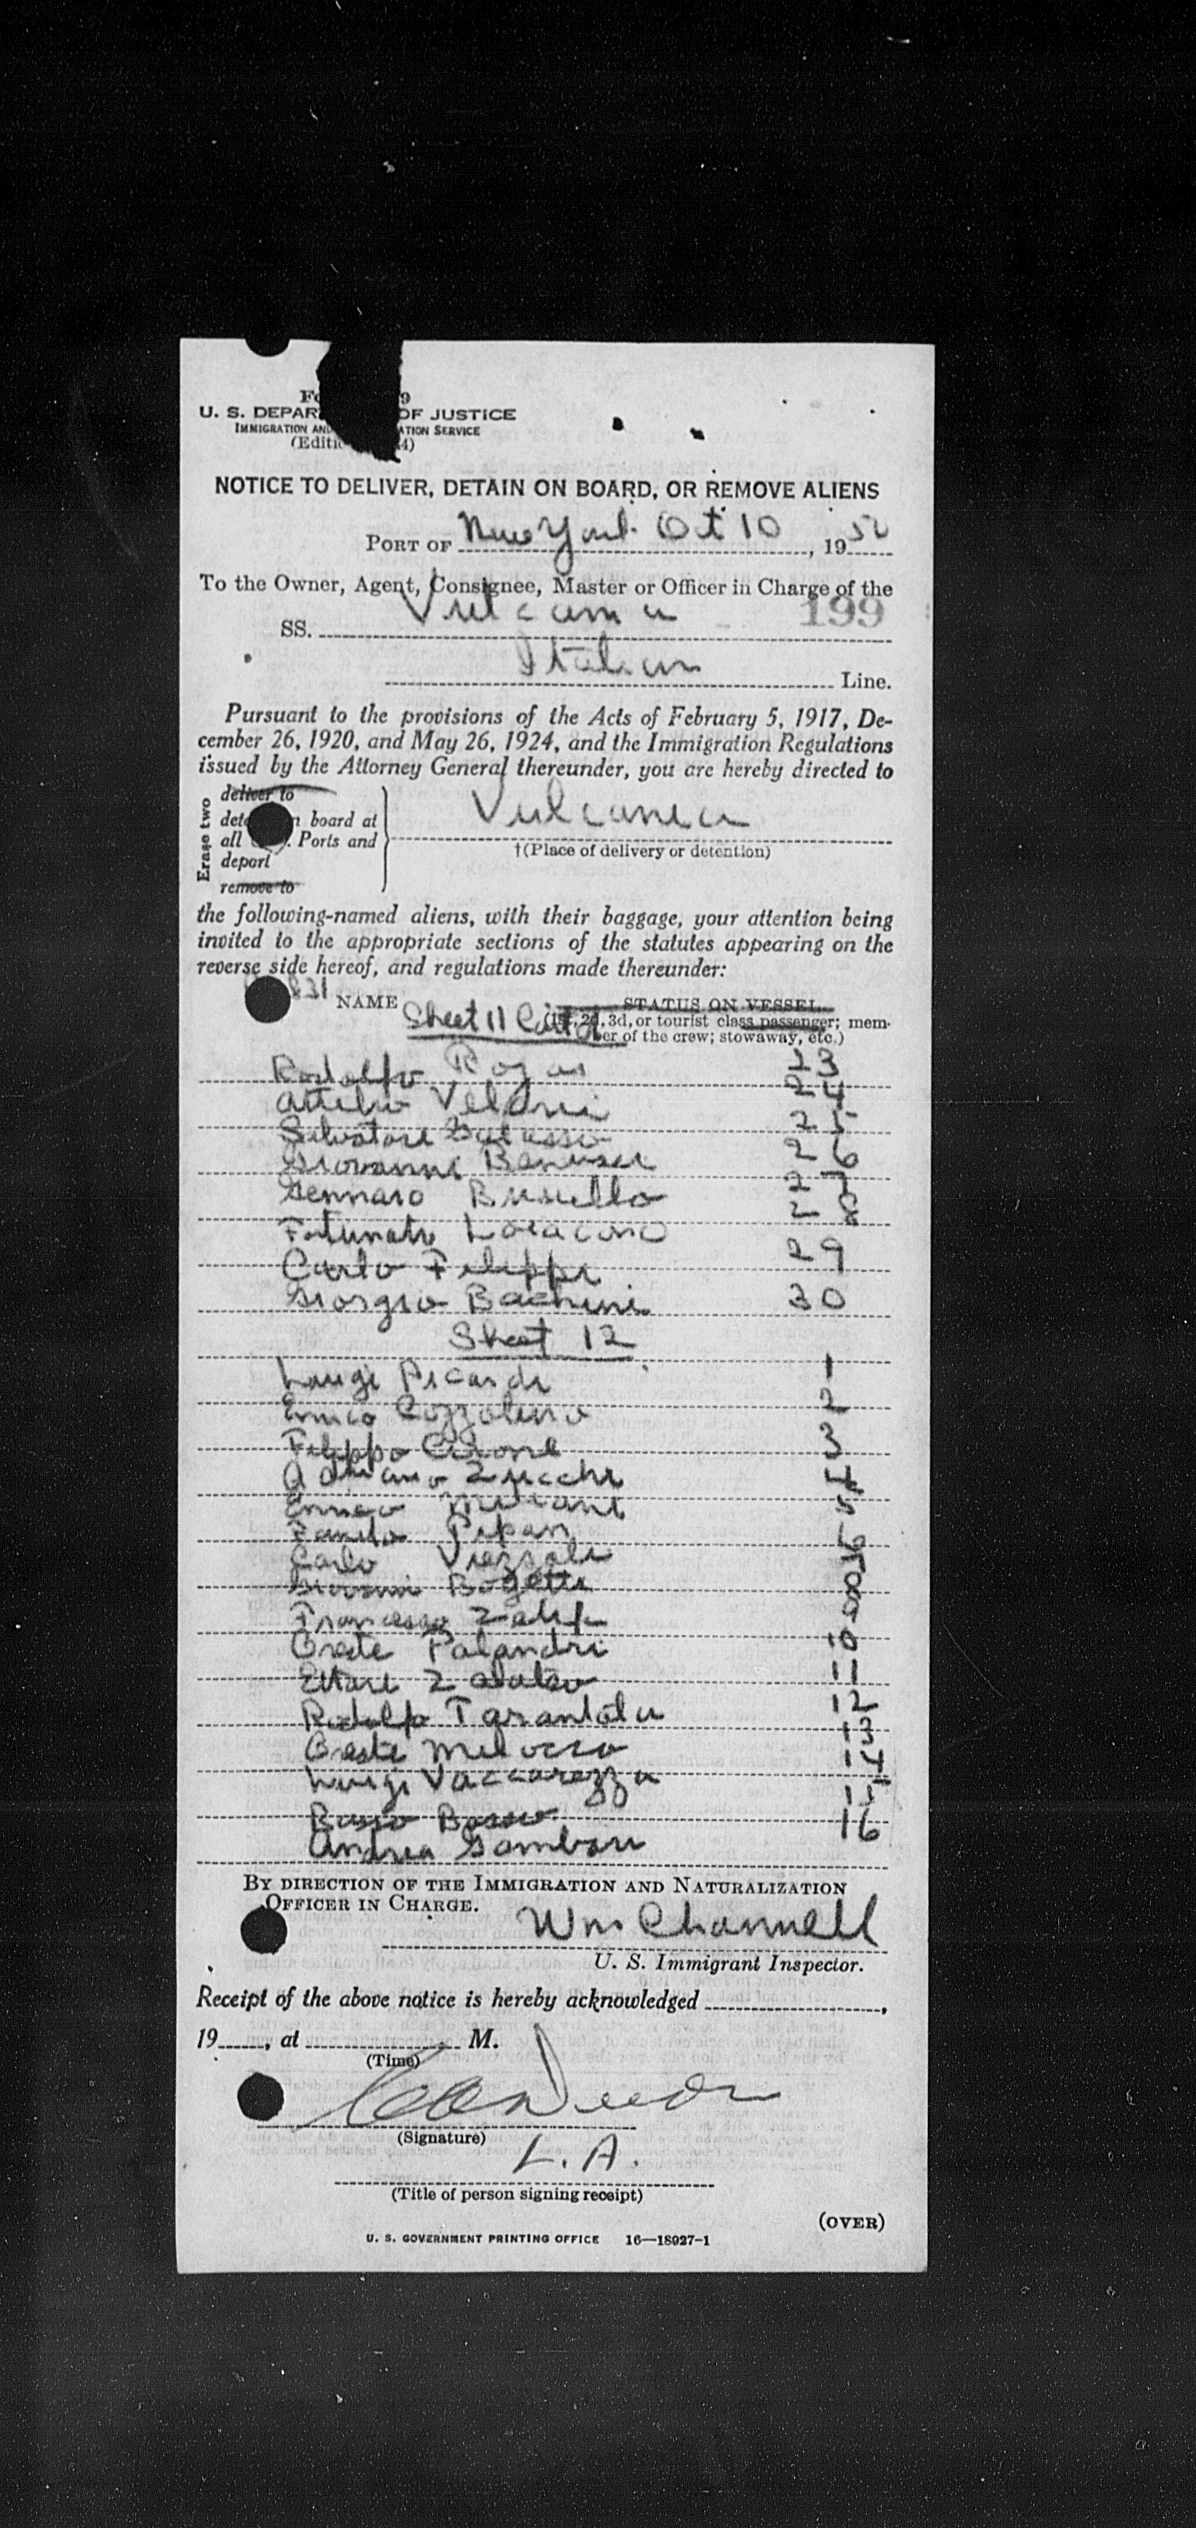 9
U. S. DEPAR OF JUSTICE
IMMIGRATION AND ATION SERVICE
(Editi 4)
NOTICE TO DELIVER, DETAIN ON BOARD, OR REMOVE ALIENS
PORT OF New York Oct 10, 1950
To the Owner, Agent, Consignee, Master or Officer in Charge of the
199
SS. Vulcania
Italian Line.
Pursuant to the provisions of the Acts of February 5, 1917, De-
cember 26, 1920, and May 26, 1924, and the Immigration Regulations
issued by the Attorney General thereunder, you are hereby directed to
Erase two
deliver to
det n board at
all . Ports and
deport
remove to
Vulcania
†(Place of delivery or detention)
the following-named aliens, with their baggage, your attention being
invited to the appropriate sections of the statutes appearing on the
reverse side hereof, and regulations made thereunder:
831
NAME STATUS ON VESSEL
Sheet 11 Cont'd (1st, 2d, 3d, or tourist class passenger; mem-
ber of the crew; stowaway, etc.)
Rodolfo 23
Attilio 24
Salvatore 25
Giovanni 26
Gennaro 27
Fortunato 28
Carlo Filippi 29
Giorgio Bachini 30
Sheet 12
Luigi Picardi 1
Enrico Cozzolino 2
Filippo Cirone 3
Adriano Zucchi 4
Enrico 5
Pipan 6
Carlo Viezzoli 7
Giovanni Bogetti 8
Francesco 9
Oreste Palandri 10
Ettore 11
Rodolfo Tarantola 12
Oreste 13
Luigi Vaccarezza 14
15
Andrea Gambaro 16
BY DIRECTION OF THE IMMIGRATION AND NATURALIZATION
OFFICER IN CHARGE.
Wm Channell
U. S. Immigrant Inspector.
Receipt of the above notice is hereby acknowledged ,
19 , at M.
(Time)
(Signature)
L. A.
(Title of person signing receipt)
(OVER)
U. S. GOVERNMENT PRINTING OFFICE 16—18027-1